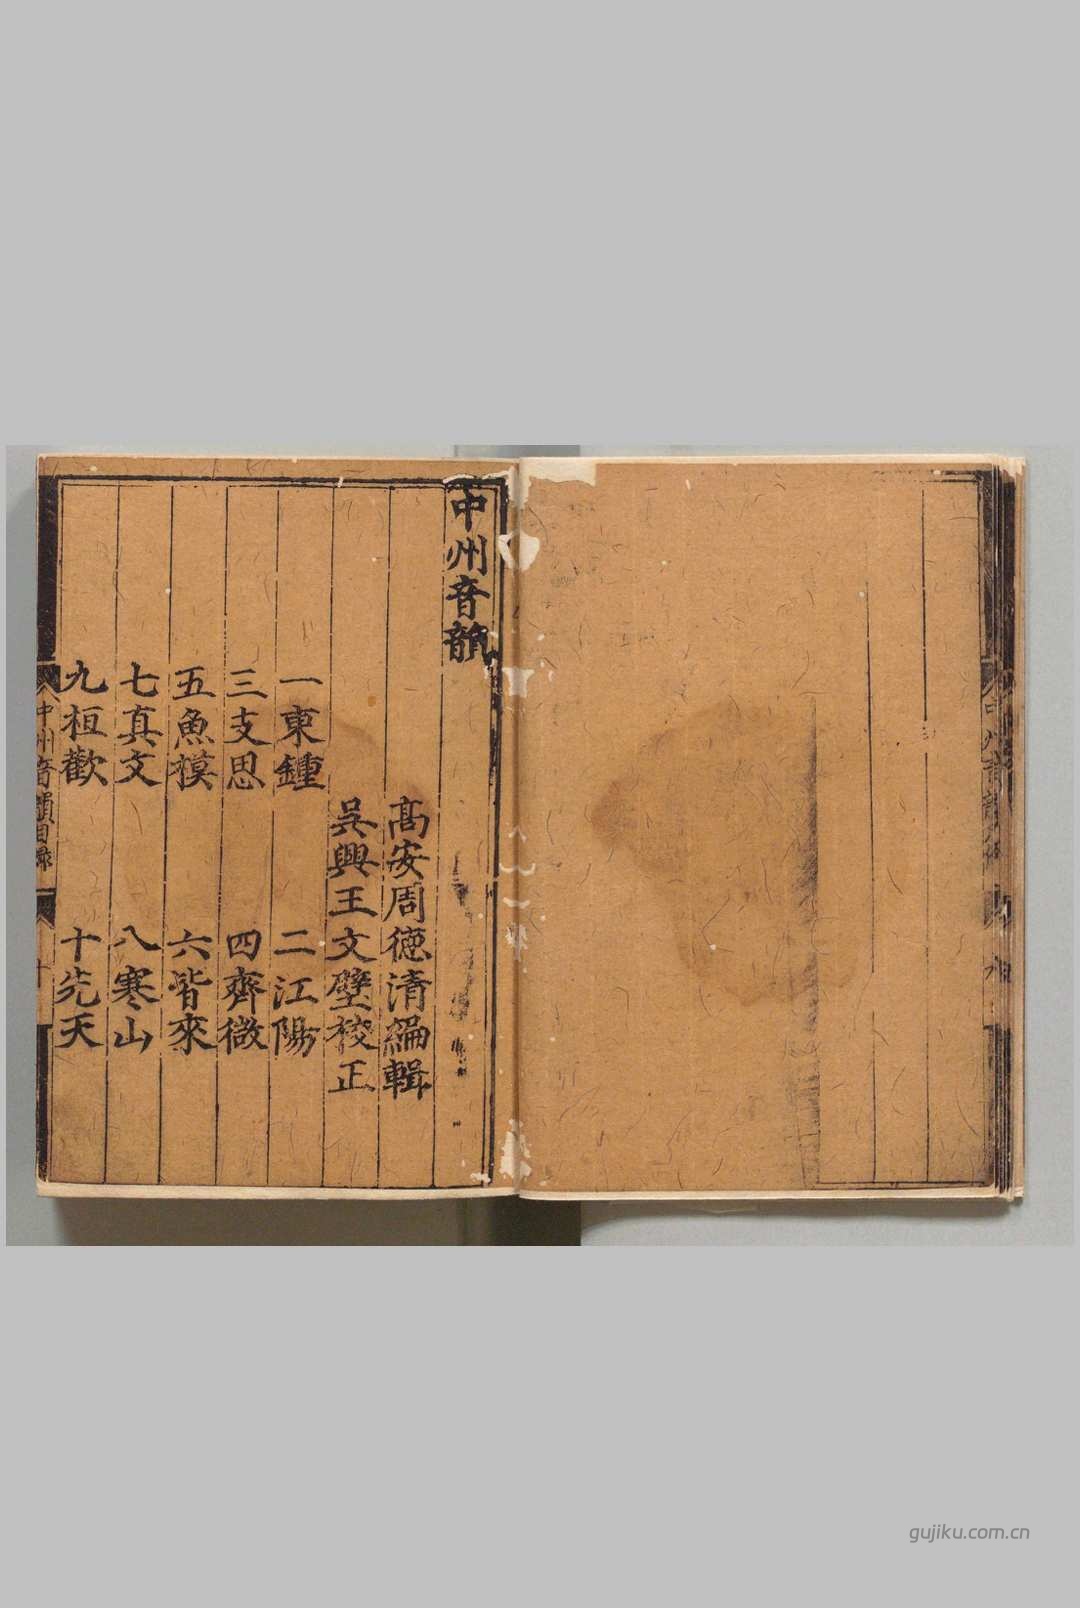 中州音韻
高安周德清編輯
吳興王文璧校正
一東鍾 二江陽
三支思 四齊微
五魚模 六皆來
七真文 八寒山
九桓歡 十先天
中州音韻目錄
gujiku.com.cn